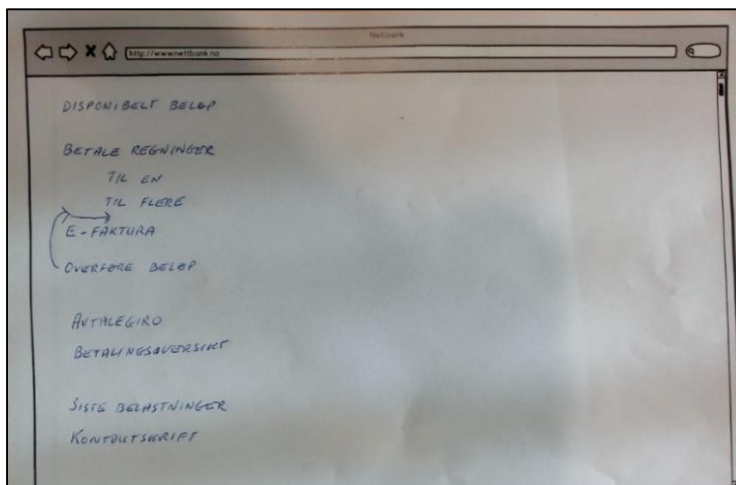 Nettbank
http://www.nettbank.no
DISPONIBELT BELØP
BETALE REGNINGER
TIL EN
TIL FLERE
E-FAKTURA
OVERFØRE BELØP
AVTALEGIRO
BETALINGSOVERSIKT
SISTE BELASTNINGER
KONTOUTSKRIFT